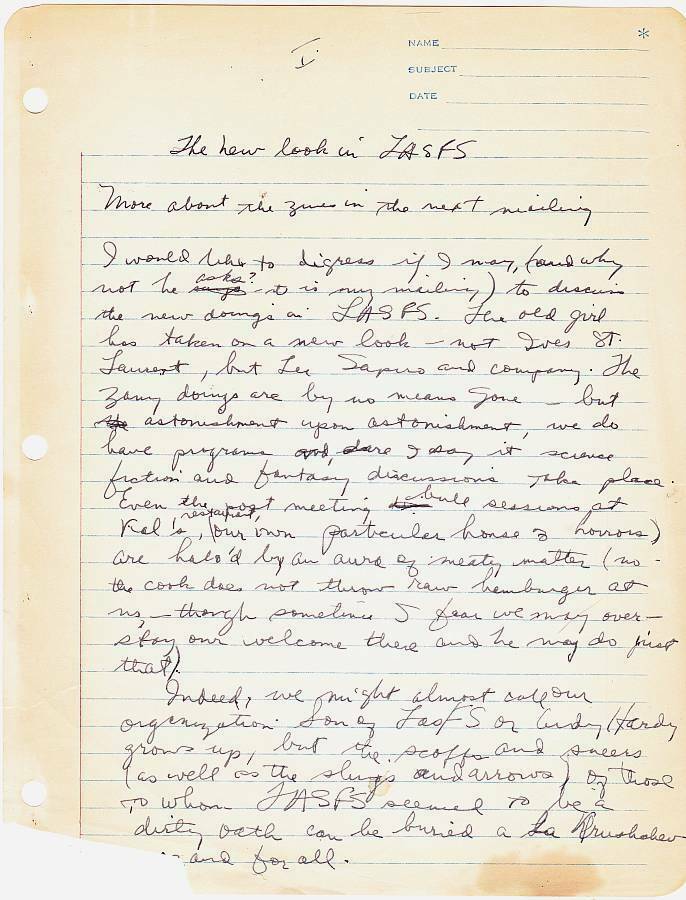 *
NAME
SUBJECT
DATE
V.
The new look in LASFS
More about the zines in the next mailing
I would like to digress if I may, (and why
not he asks? it is my mailing) to discuss
the new doings in LASFS. The old girl
has taken on a new look — not Ives St.
Laurent, but Lee Sapiro and company. The
zany doings are by no means gone — but
astonishment upon astonishment, we do
have programs and, dare I say it science
fiction and fantasy discussions take place.
Even the post meeting bull sessions at
Kal's restaurant, (our own particular house of horrors)
are halo'd by an aura of meaty matter (no -
the cook does not throw raw hamburger at
us, — though sometimes I fear we may over-
stay our welcome there and he may do just
that).
Indeed, we might almost call our
organization Son of LasFS or Andy Hardy
grows up, but the scoffs and sneers
(as well as the slings and arrows) of those
to whom LASFS seemed to be a
dirty oath can be buried a la Krushchev
and for all.